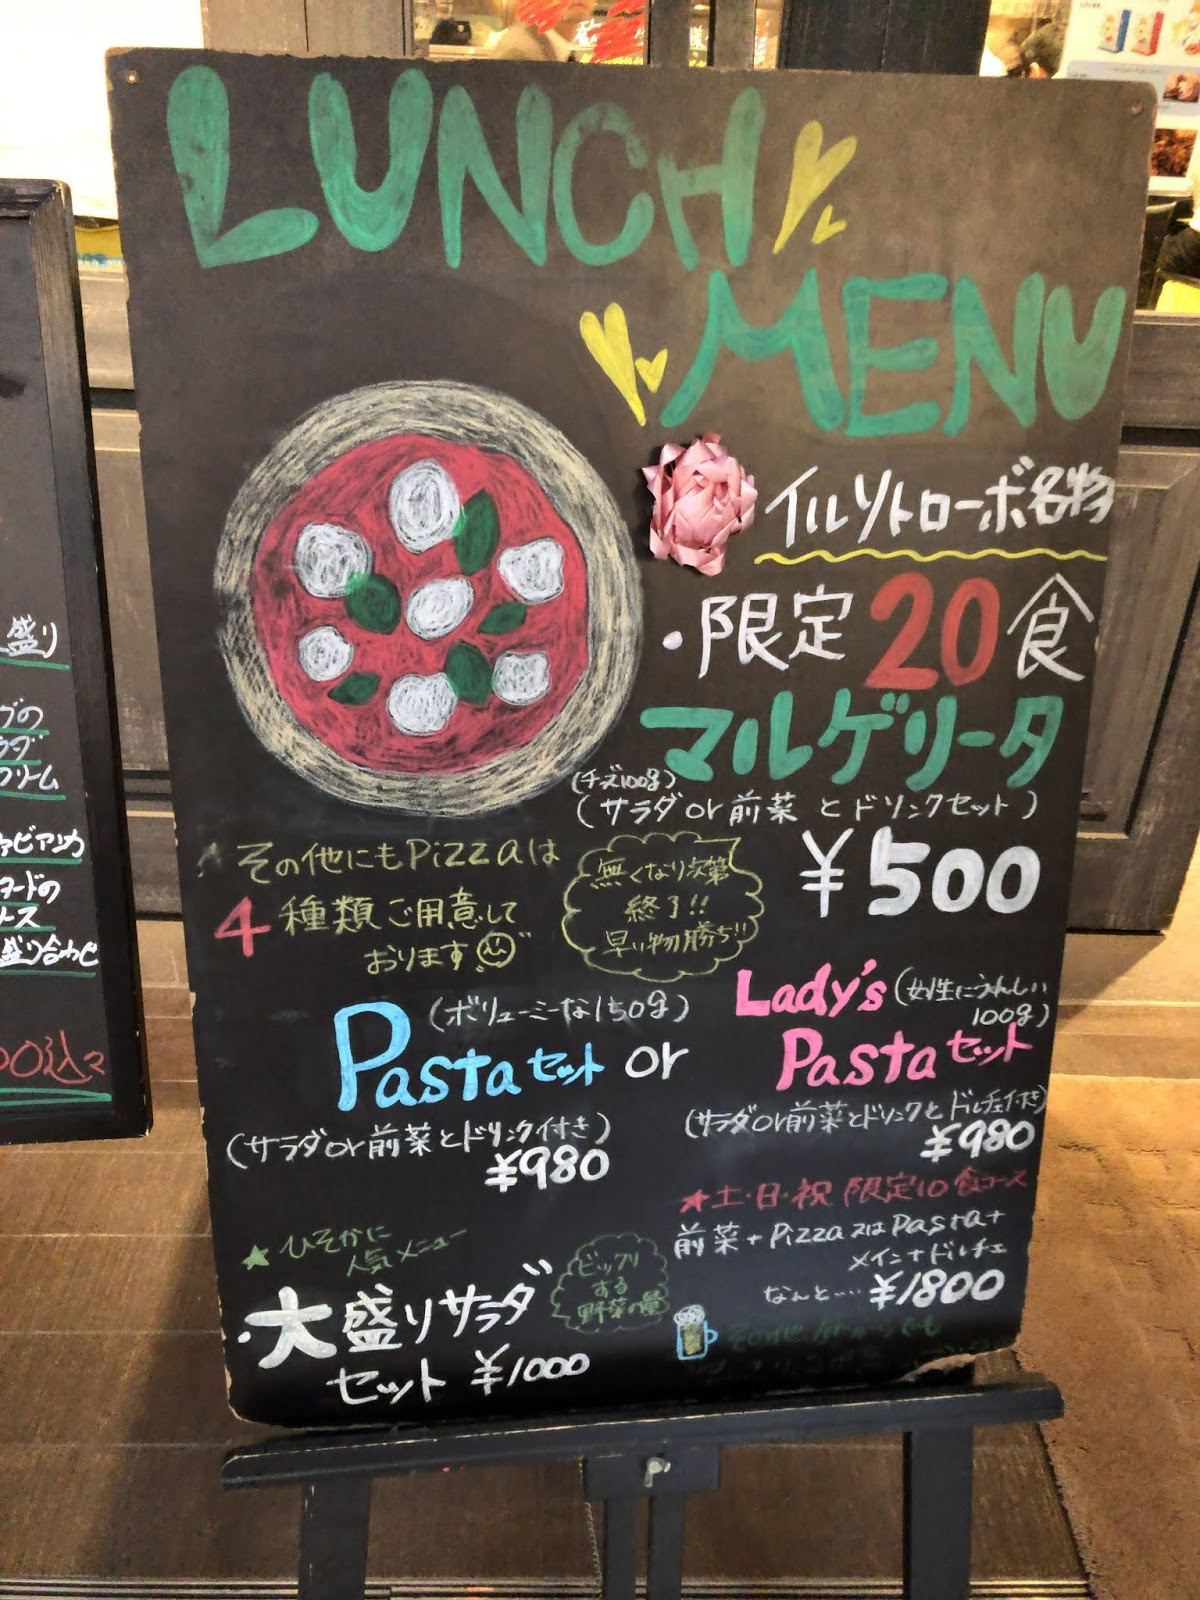 LUNCH
MENU
イルソトローボ名物
・限定20食
マルゲリータ
(チーズ100g)
(サラダor前菜とドリンクセット)
¥500
その他にもPizzaは
4種類ご用意して
おります
無くなり次第
終了!!
早い物勝ち!!
(ボリューミーな150g)
Pastaセット or
(サラダor前菜とドリンク付き)
¥980
Lady's (女性にうれしい
100g)
Pastaセット
(サラダor前菜とドリンクとドルチェ付き)
¥980
★土・日・祝 限定10食コース
前菜+Pizza又はPasta+
メイン+ドルチェ
なんと…… ¥1800
★ひそかに
人気メニュー
・大盛りサラダ
セット ¥1000
ビックリ
する
野菜の量
その他
盛り
グの
クリーム
ードの
ース
盛り合わせ